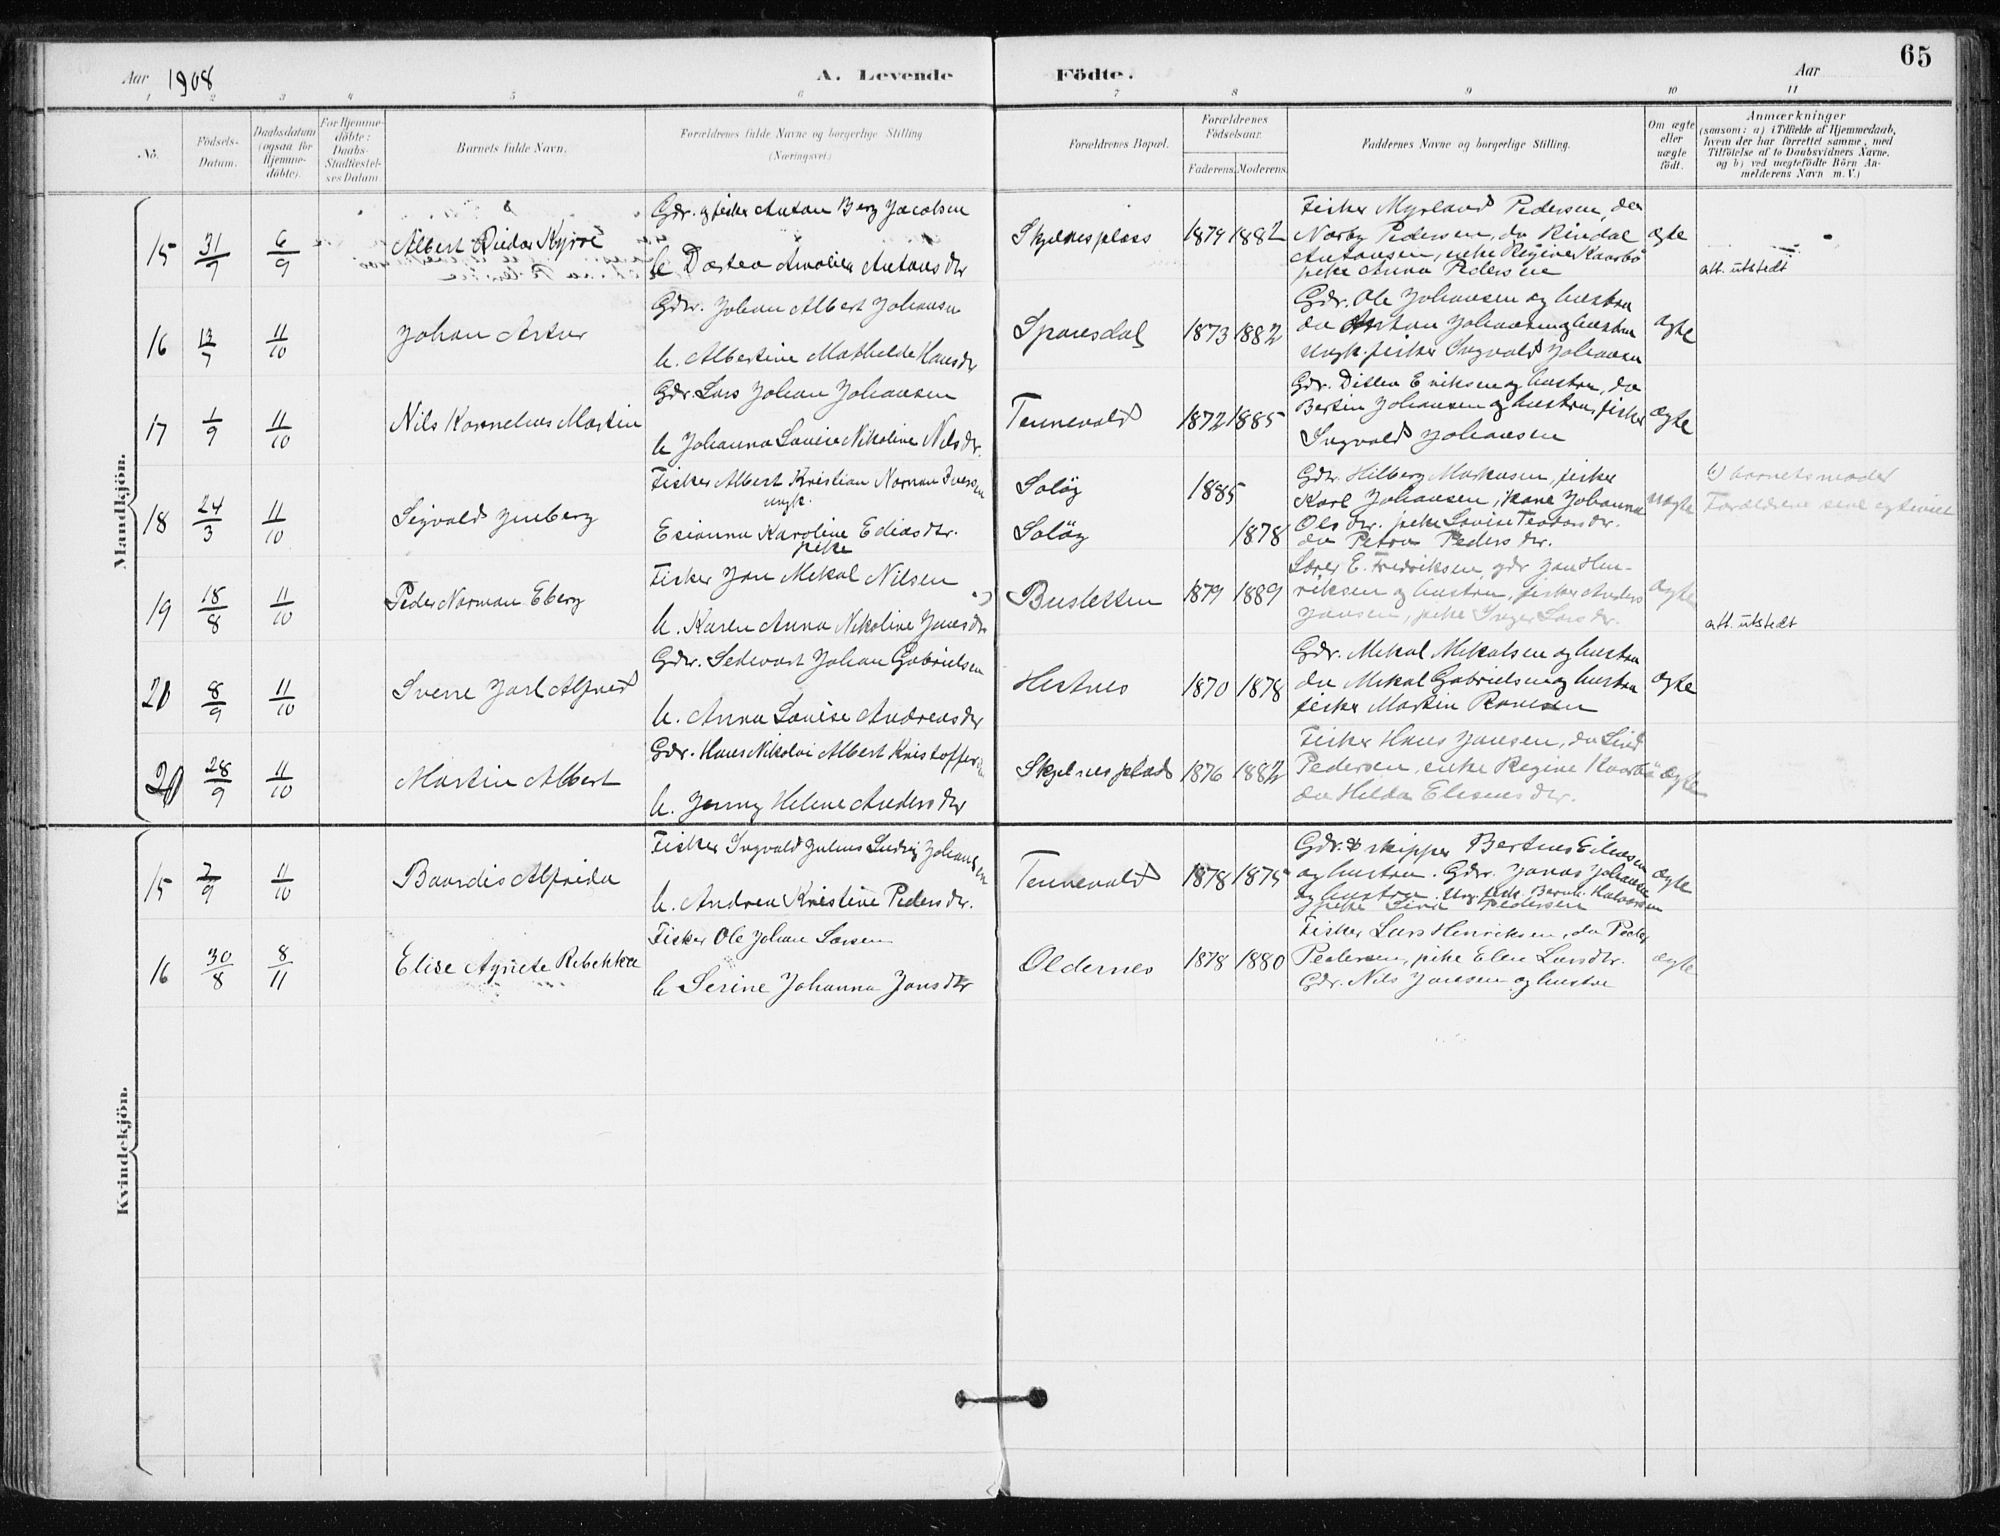 65
Aar 1908 A. Levende Födte. Aar
1 2 3 4 5 6 7 8 9 10 11
No. Födsels-Datum. Daabsdatum (ogsaa for Hjemme-döbte). For Hjemme-döbte: Daabs-Stadfæstel-ses Datum Barnets fulde Navn. Forældrenes fulde Navne og borgerlige Stilling (Næringsvei.) Forældrenes Bopæl. Forældrenes Födselsaar. Faderens. Moderens. Faddernes Navne og borgerlige Stilling. Om ægte eller uægte födt. Anmærkninger (saasom: a) i Tilfælde af Hjemmedaab, hvem der har forrettet samme, med Tilföielse af to Daabsvidners Navne, og b) ved uægtefödte Börn An-melderens Navn m. V.)
Mandkjön.
15 31/7 6/9 Albert Kyrre
Gdr. og fisker Anton Berg Jacobsen
h. Dortea Amalia Antonsdtr
Skjelnesplass 1879 1882
Fisker Myrland Pedersen, do
Norby Pedersen, do Rindal
Antonsen, enke Regine Kaarbö
pike Anna Pedersen
ægte
att. utstedt
16 13/7 11/10 Johan Artur
Gdr. Johan Albert Johansen
h. Albertine Mathilde Hansdtr
Spaasdal 1873 1882
Gdr. Ole Johansen og hustru
do Johansen og hustru
Ungk. fisker Ingvald Johansen
ægte
17 1/9 11/10 Nils Kornelius Martin
Gdr Lars Johan Johansen
h Johanna Lovise Nikoline Nilsdtr.
Tennevold 1872 1885
Gdr. Ditlev Eriksen og hustru, do
Bertin Johansen og hustru, fisker
Ingvald Johansen
ægte
18 24/3 11/10 Sigvald Ymberg
Fisker Albert Kristian Norman Iversen
ungk.
Esianna Karoline Ediasdtr.
pike
Soløy 1885
Soløy 1878
Gdr. Hilberg Markusen, fisker
Karl Johansen, kone Johanna
Olsdtr. pike Lovise
do Petra Pedersdtr.
uægte
b) barnets moder
19 18/8 11/10 Peder Norman Eberg
Fisker Jon Mikal Nilsen
h. Karen Anna Nikoline Jonsdtr
Busletten 1879 1889
Lærer E. Fredriksen, gdr Jon Hen-
riksen og hustru, fisker Anders
Jonsen, pike Inger Larsdtr.
ægte
att. utstedt
20 8/9 11/10 Sverre Jarl Alfred
Gdr. Sedevart Johan Gabrielsen
h. Anna Lovise Andreasdtr
Hestnes 1870 1878
Gdr. Mikal Mikalsen og hustru
do Mikal Gabrielsen og hustru
fisker Martin
ægte
28/9 11/10 Martin Albert
Gdr. Hans Nikolai Albert Kristoffersen
h. Jenny Helene Andersdtr
Skjelnesplads 1876 1882
Fisker Hans Jansen, do
Pedersen, enke Regine Kaarbö
do Hilda
ægte
Kvindekjön.
15 7/9 11/10 Baardis Alfrida
Fisker Ingvald Julius Ludvig Johansen
h. Andrea Kristine Pedersdtr.
Tennevold 1878 1875
Gdr. & skipper Bertines
og hustru. Gdr. Jonas Johansen
og hustru. Ungk. fisk. Bernh. Halvorsen
pike Lina Pedersen
ægte
16 30/8 8/11 Elise Agnete Rebekka
Fisker Ole Johan Larsen
h Serine Johanna Jonsdtr
Oldernes 1878 1880
Fisker Lars Henriksen, do Peder
Pedersen, pike Elen Larsdtr.
Gdr. Nils Jonsen og hustru
ægte